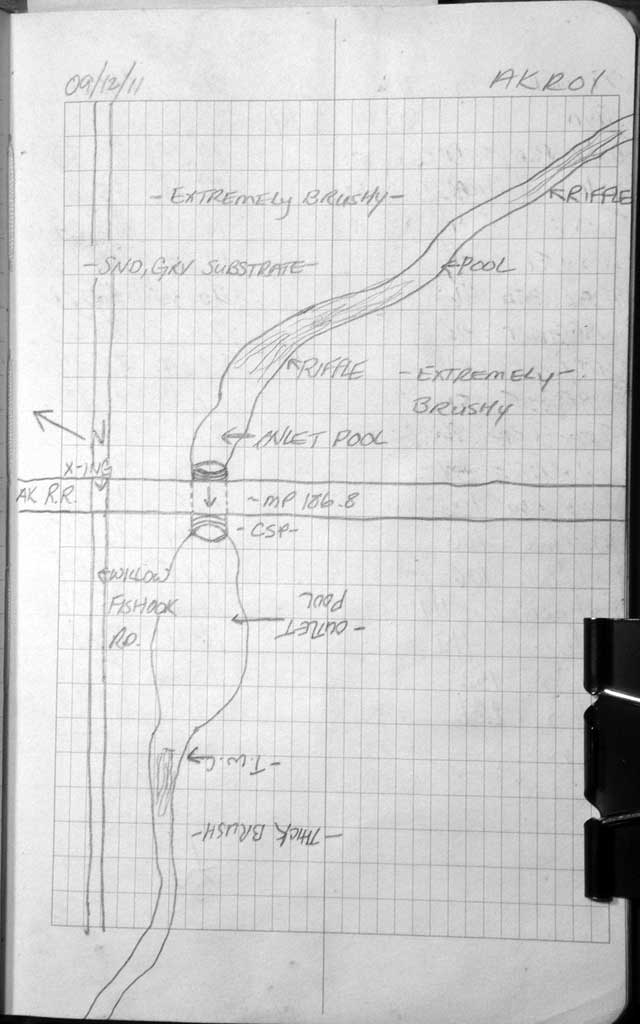 09/12/11
AKR01
-EXTREMELY BRUSHY-
RIFFLE
-SND, GRV SUBSTRATE-
POOL
RIFFLE
-EXTREMELY-
BRUSHY
INLET POOL
X-ING
AK R.R.
-MP 186.8
-CSP-
WILLOW
FISHOOK
RD.
-OUTLET
POOL
-T.W.C.
-THICK BRUSH-